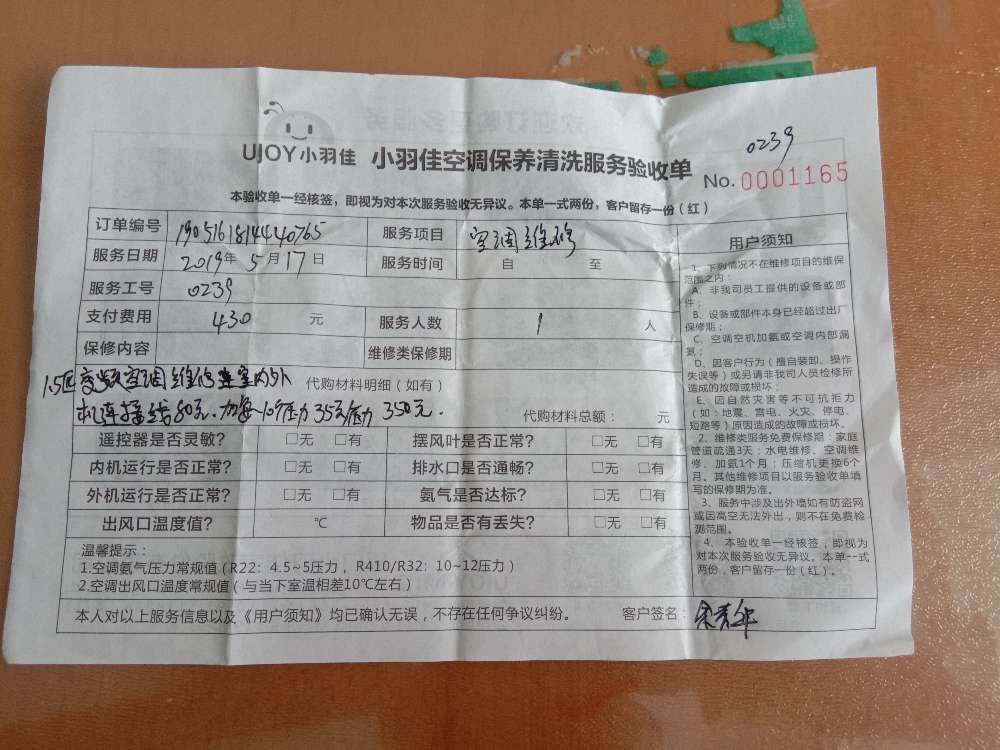 0239
UJOY小羽佳 小羽佳空调保养清洗服务验收单 No.0001165
本验收单一经核签，即视为对本次服务验收无异议。本单一式两份，客户留存一份（红）
订单编号 19051618144440765 服务项目 空调维修
服务日期 2019年5月17日 服务时间 自 至
服务工号 0239
支付费用 430 元 服务人数 1 人
保修内容 维修类保修期
1.5匹变频空调维修 室内外 代购材料明细（如有）
机连接线80元. 加每10个压力35元/压力 350元. 代购材料总额： 元
遥控器是否灵敏？ □无 □有 摆风叶是否正常？ □无 □有
内机运行是否正常？ □无 □有 排水口是否通畅？ □无 □有
外机运行是否正常？ □无 □有 氨气是否达标？ □无 □有
出风口温度值？ ℃ 物品是否有丢失？ □无 □有
温馨提示：
1.空调氨气压力常规值（R22：4.5~5压力，R410/R32：10~12压力）
2.空调出风口温度常规值（与当下室温相差10℃左右）
本人对以上服务信息以及《用户须知》均已确认无误，不存在任何争议纠纷。 客户签名：
用户须知
1、下列情况不在维修项目的维保
范围之内：
A、非我司员工提供的设备或部
件；
B、设备或部件本身已经超过出厂
保修期；
C、空调空机加氨或空调内部漏
氨；
D、因客户行为（擅自装卸、操作
失误等）或另请非我司人员检修所
造成的故障或损坏；
E、因自然灾害等不可抗拒力
（如：地震、雷电、火灾、停电、
短路等）原因造成的故障或损坏。
2、维修类服务免费保修期：家庭
管道疏通3天；水电维修、空调维
修、加氨1个月；压缩机更换6个
月。其他维修项目以服务验收单填
写的保修期为准。
3、服务中涉及出外墙如有防盗网
或因高空无法外出，则不在免费检
测范围。
4、本验收单一经核签，即视为
对本次服务验收无异议。本单一式
两份，客户留存一份（红）。